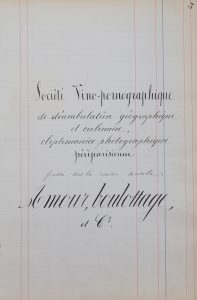 Société Vino-pornographique
de déambulation géographique
et culinaire,
cleptomanice photographique
péripatisienne
fondée sous la raison sociale
Amour, boulottage,
et Cie.